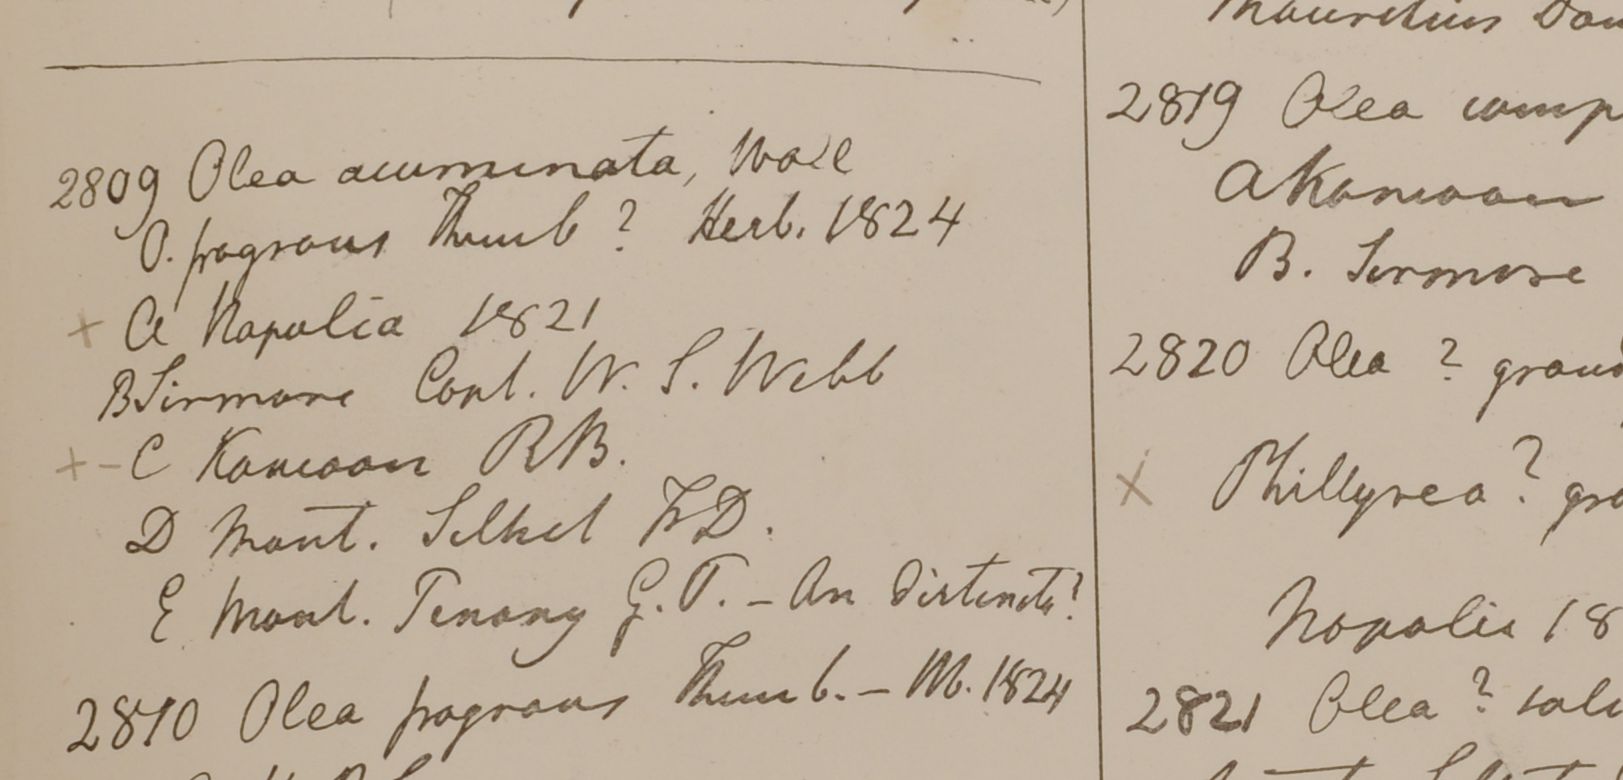 2809 Olea acuminata, Wall
O. fragrans Thunb ? Herb. 1824
+ a Napalia 1821
B Sirmore Cont. W. S. Webb
+ - C Kamaon RB.
D Mont. Silhet FD.
E Mont. Penang G.P. - An distincta?
2810 Olea fragrans Thunb. - M. 1824
Mauritius
2819 Olea comp
a Kamaon
B. Sirmore
2820 Olea ? grand
X Phillyrea ? gra
Napalia 18
2821 Olea ? sali